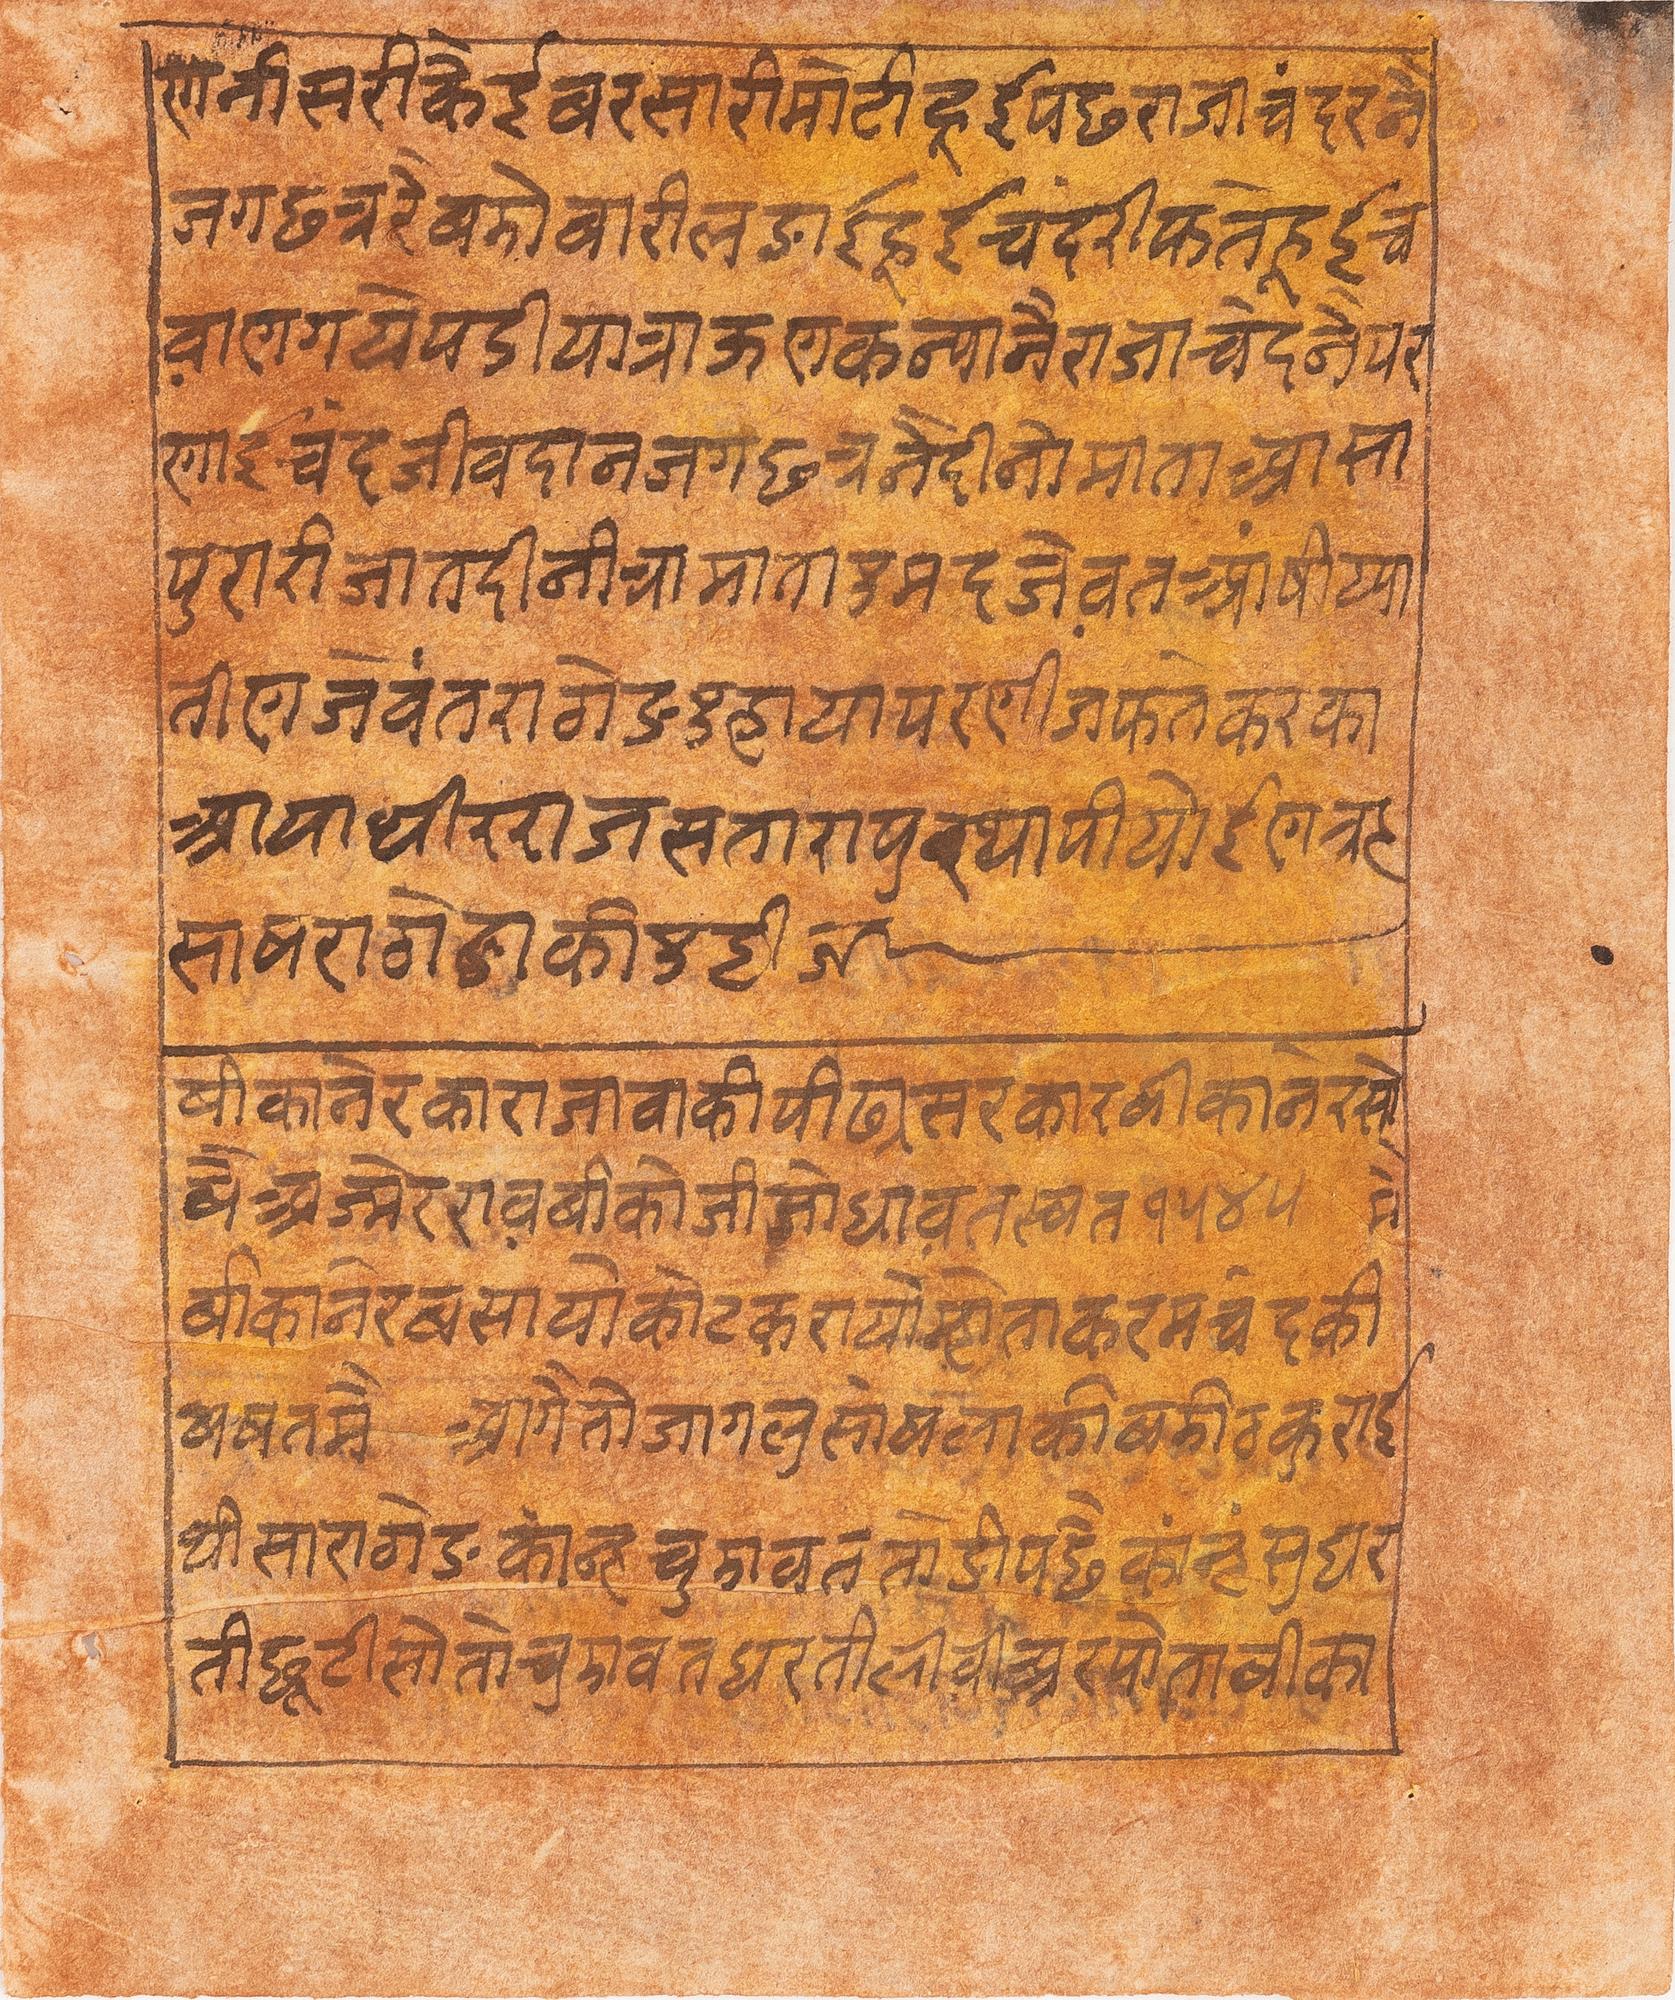 णनीसरीकेईबरसारीमोटीहूईपछराजाचंदरनै
जगछत्ररेबमोवारीलडाईहूईचंदरीफतेहूईच
वाणगयेपडीयात्राऊणकन्यानैराजाचंदनैपर
णाईचंदजीवदानजगछत्रनैदीनोमाताआसा
पुरारीजातदीनीचामाताऽमदजैवतआंषीय्या
तीणजेवंतराठोडऽहायापरणीजफतेकरका
आयाधीरराजसतारापुरथापीयोईणत्रह
साषराठोडाकीऽहीज
बीकानेरकाराजावाकीपीढ्यसरकारबीकानेरसो
बैअजमेररावबीकोजीजोधावतस्बत१५४५ मे
बीकानेरबसायोकोटकरायोम्होताकरमचंदकी
अषतमै आगैतोजागलुसांषलाकीबमीठकुराई
थीसाराठोडकांन्हचुमावततोडीपछैकांन्हंसुधर
तीछूटीसोतोचुमावतधरतीलीवीअरपोताबीका